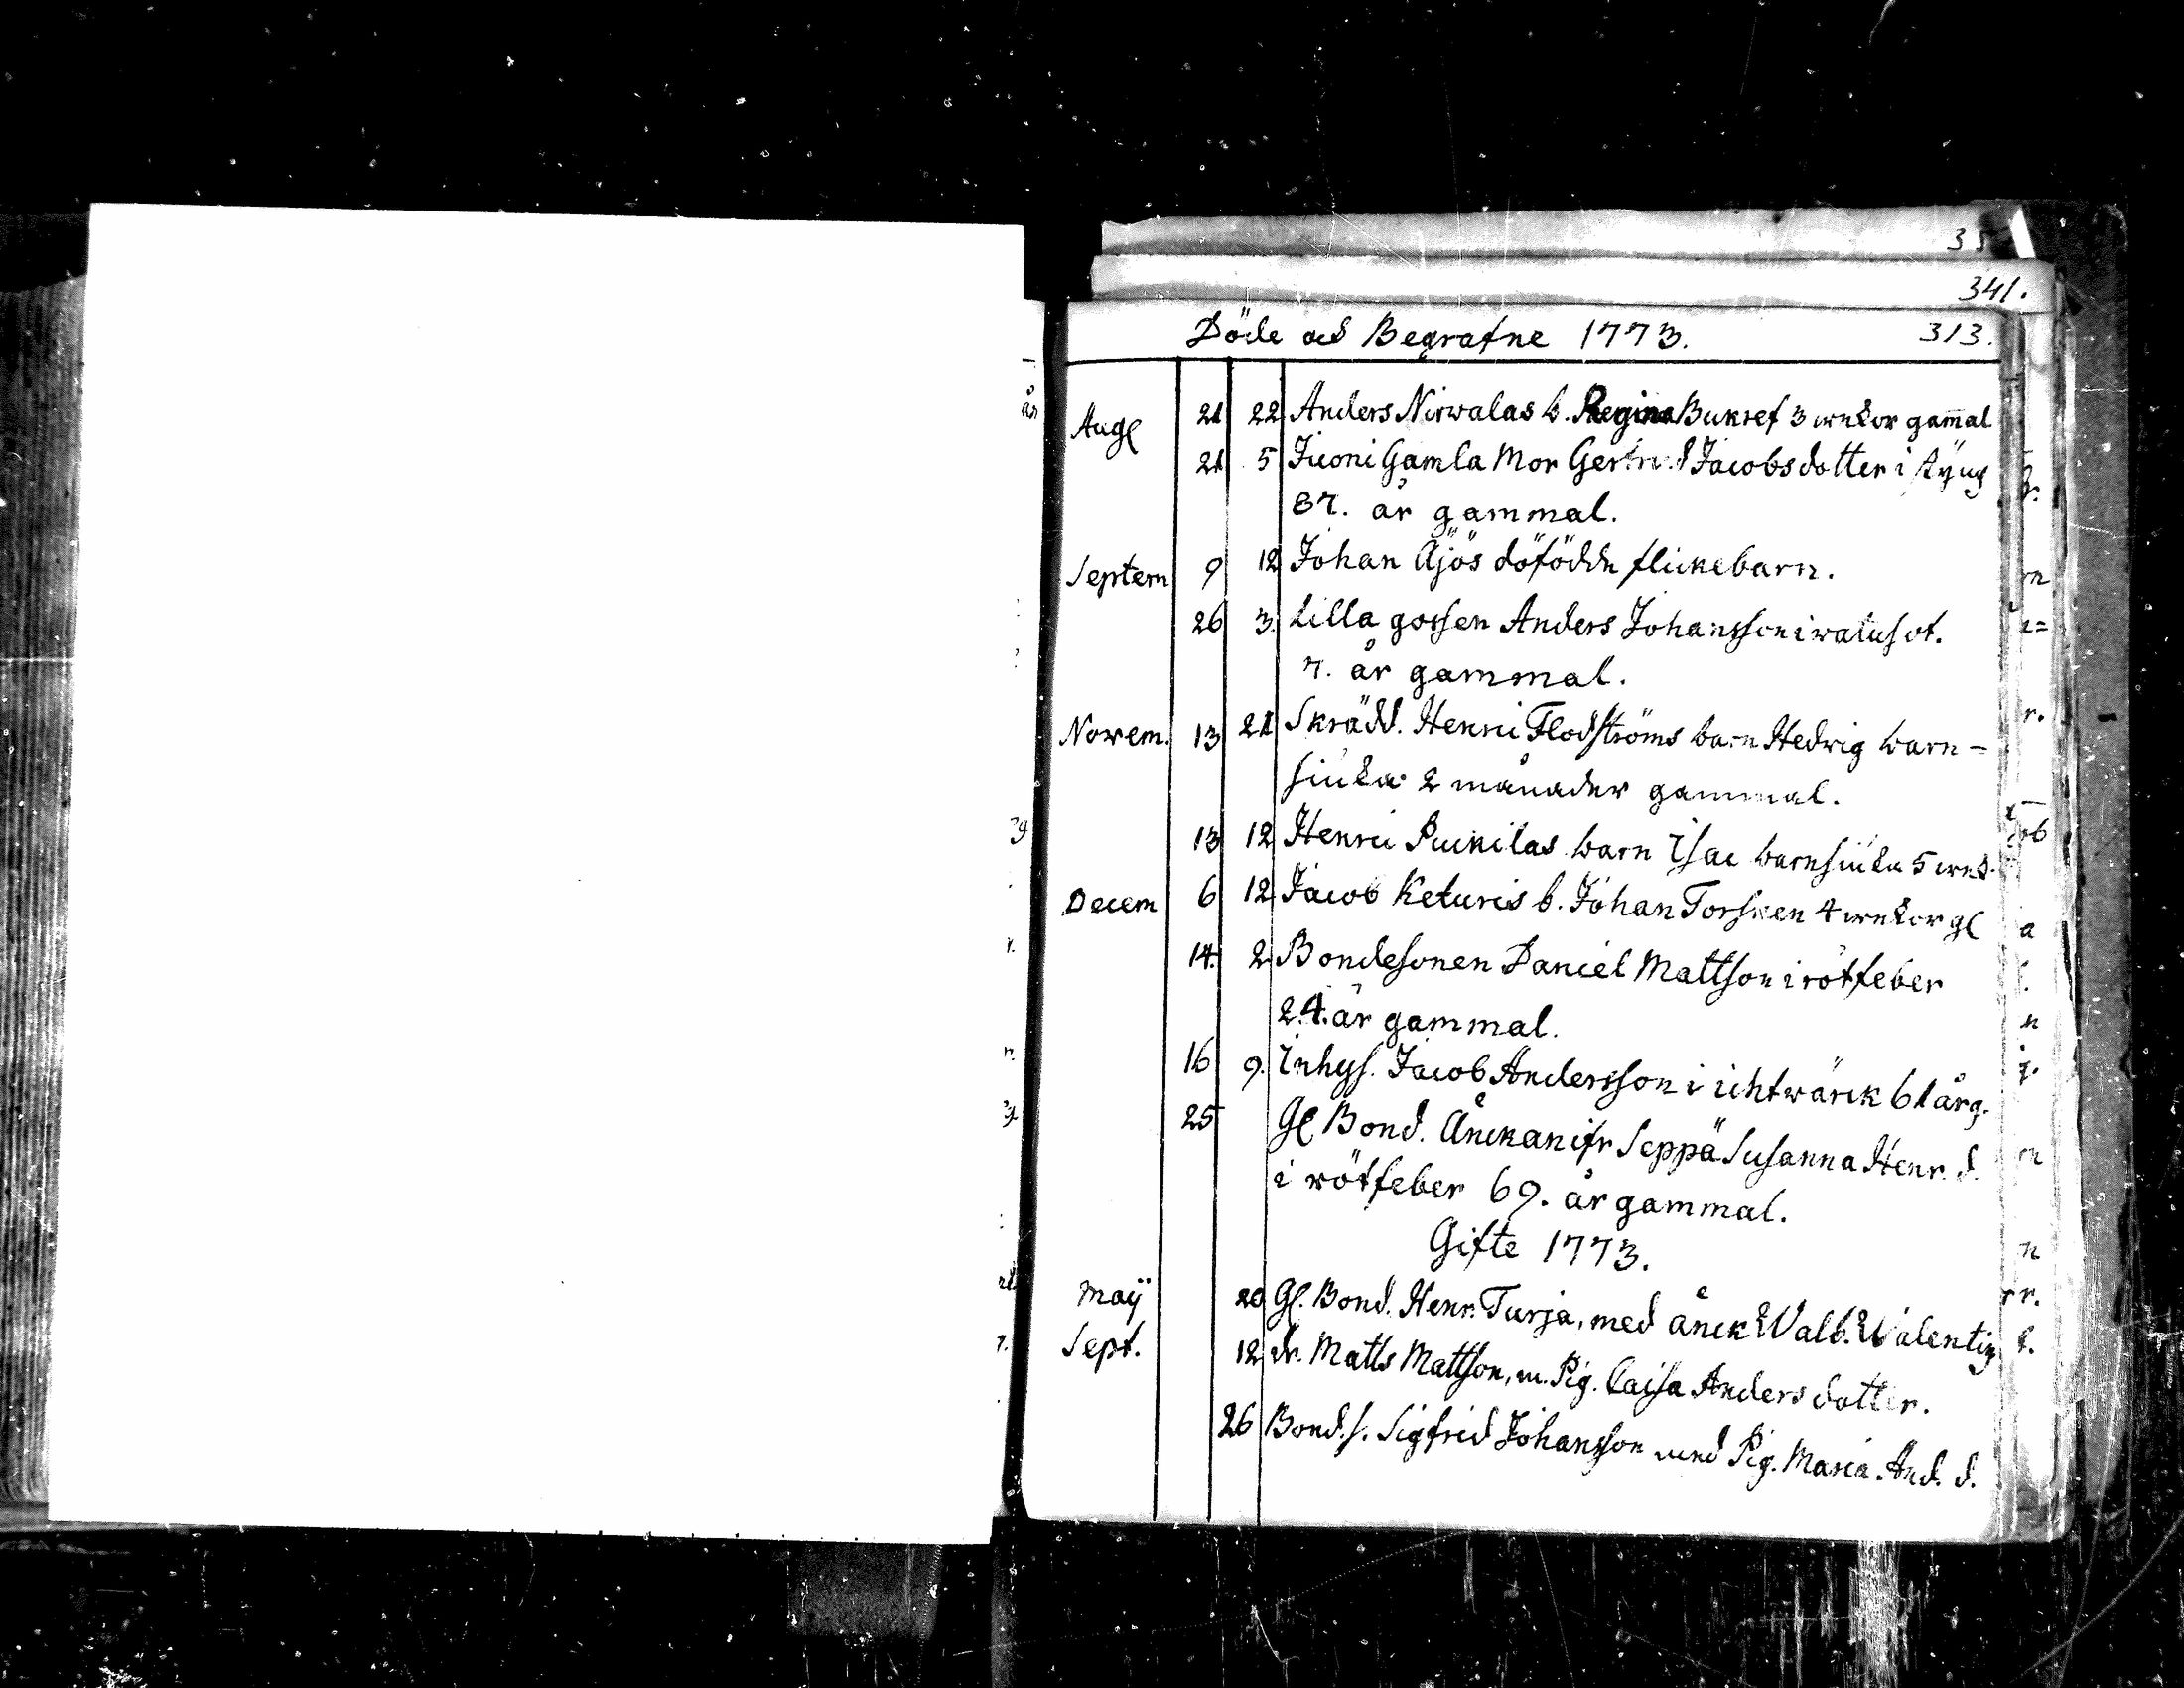 35
341.
Döde och Begrafne 1773. 313.
Augl 21 22 Anders Nirwalas b. Regina Bukref 3 wekor gamal
21 5 Juoni Gamla Mor Gertrud Jacobsdotter i
87. år gammal.
Septem 9 12 Johan Äjös döfödde flickebarn.
26 3. Lilla gossen Anders Johansson i watusot.
7. år gammal.
Novem. 13 21 Skrädd. Henric Flodströms barn Hedvig barn-
siuka 2 månader gammal.
13 12 Henric Puckilas barn Isac barnsiuka 5 wek.
Decem 6 12 Jacob Keturis b. Johan Torsken 4 wekor gl
14. 2 Bondesonen Daniel Mattson i rötfeber
24. år gammal.
16 9. Inhys. Jacob Andersson i ichtwärck 61 år g.
25 Gl Bond. Änckan ifr Seppä Susanna Henr. d.
i rötfeber 69. år gammal.
Gifte 1773.
Maÿ 20 Gl. Bond. Henr. Turja, med änck Walb. Walentiz
Sept. 12 dr. Matts Mattson, m. Pig. Caisa Andersdotter.
26 Bond. s. Sigfrid Johansson med Pig. Maria And. d.